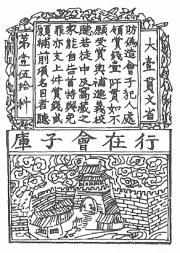 大壹貫文省
敕偽造會子犯人處
斬賞錢壹仟貫如不
願受賞與補進義校
尉若徒中及窩藏之
家能自告首特與免
罪亦支上件賞錢或
願補前項名目者聽
第壹伍拾料
行在會子庫